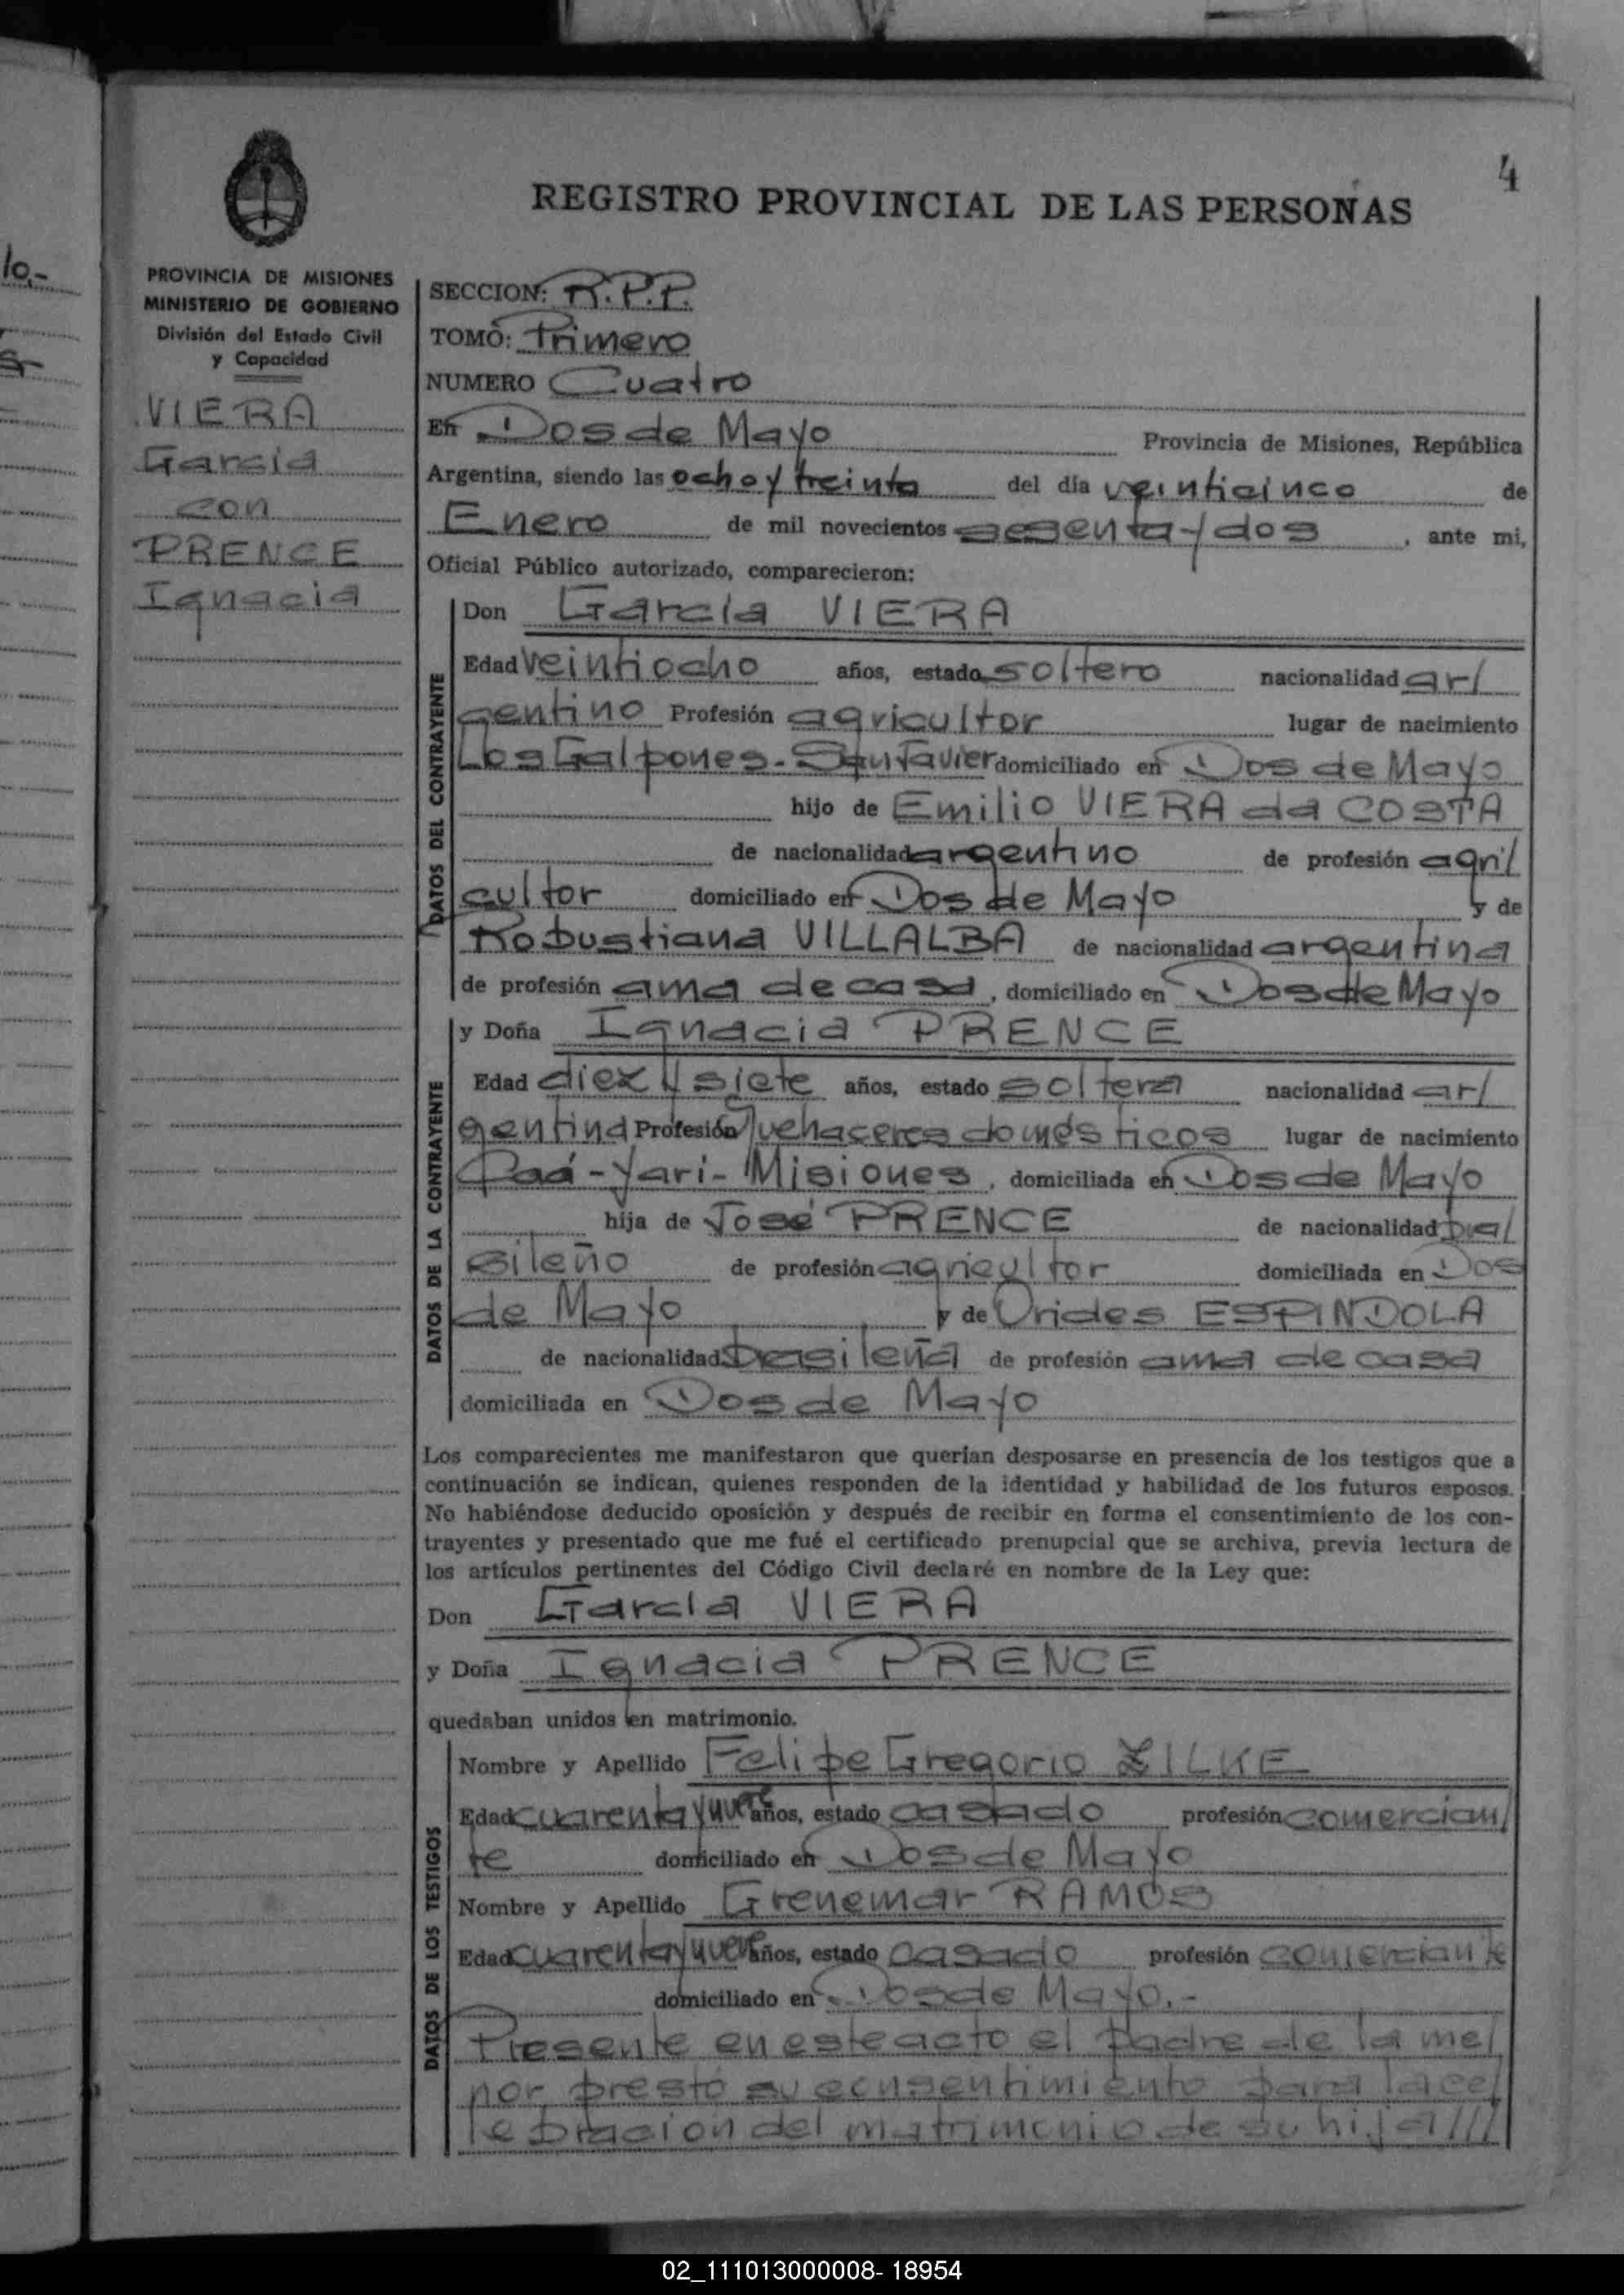 4
REGISTRO PROVINCIAL DE LAS PERSONAS
10,-
PROVINCIA DE MISIONES
MINISTERIO DE GOBIERNO
División del Estado Civil
y Capacidad
VIERA
Garcia
con
PRENCE
Ignacia
SECCION: R.P.P.
TOMO: Primero
NUMERO Cuatro
En Dos de Mayo Provincia de Misiones, República
Argentina, siendo las ocho y treinta del día veinticinco de
Enero de mil novecientos sesenta y dos, ante mi,
Oficial Público autorizado, comparecieron:
DATOS DEL CONTRAYENTE
Don Garcia VIERA
Edad veintiocho años, estado soltero nacionalidad ar/
gentino Profesión agricultor lugar de nacimiento
Los Galpones - San Javier domiciliado en Dos de Mayo
hijo de Emilio VIERA da COSTA
de nacionalidad argentino de profesión agri/
cultor domiciliado en Dos de Mayo y de
Robustiana VILLALBA de nacionalidad argentina
de profesión ama de casa, domiciliado en Dos de Mayo
DATOS DE LA CONTRAYENTE
y Doña Ignacia PRENCE
Edad diez y siete años, estado soltera nacionalidad ar/
gentina Profesión Quehaceres domésticos lugar de nacimiento
Caá-Yari-Misiones, domiciliada en Dos de Mayo
hija de José PRENCE de nacionalidad bra/
sileño de profesión agricultor domiciliada en Dos
de Mayo y de Orides ESPINDOLA
de nacionalidad brasileña de profesión ama de casa
domiciliada en Dos de Mayo
Los comparecientes me manifestaron que querían desposarse en presencia de los testigos que a
continuación se indican, quienes responden de la identidad y habilidad de los futuros esposos.
No habiéndose deducido oposición y después de recibir en forma el consentimiento de los con-
trayentes y presentado que me fué el certificado prenupcial que se archiva, previa lectura de
los artículos pertinentes del Código Civil declaré en nombre de la Ley que:
Don Garcia VIERA
y Doña Ignacia PRENCE
quedaban unidos en matrimonio.
DATOS DE LOS TESTIGOS
Nombre y Apellido Felipe Gregorio ZILKE
Edad cuarenta y nueve años, estado casado profesión comercian/
te domiciliado en Dos de Mayo
Nombre y Apellido Grenemar RAMOS
Edad cuarenta y nueve años, estado casado profesión comerciante
domiciliado en Dos de Mayo.-
Presente en este acto el padre de la me/
nor presto su consentimiento para la ce/
lebracion del matrimonio de su hija///
02_111013000008- 18954